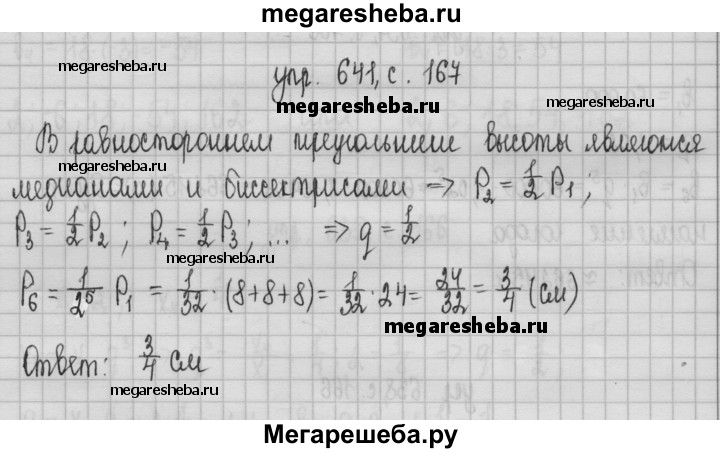 megaresheba.ru
megaresheba.ru
упр. 641, с. 167
megaresheba.ru
megaresheba.ru
В равностороннем треугольнике высоты являются
megaresheba.ru
медианами и биссектрисами => P₂ = 1/2 P₁;
P₃ = 1/2 P₂; P₄ = 1/2 P₃; ... => q = 1/2
megaresheba.ru
P₆ = 1/2⁵ P₁ = 1/32 · (8+8+8) = 1/32 · 24 = 24/32 = 3/4 (см)
megaresheba.ru
Ответ: 3/4 см
megaresheba.ru
Мегарешеба.ру